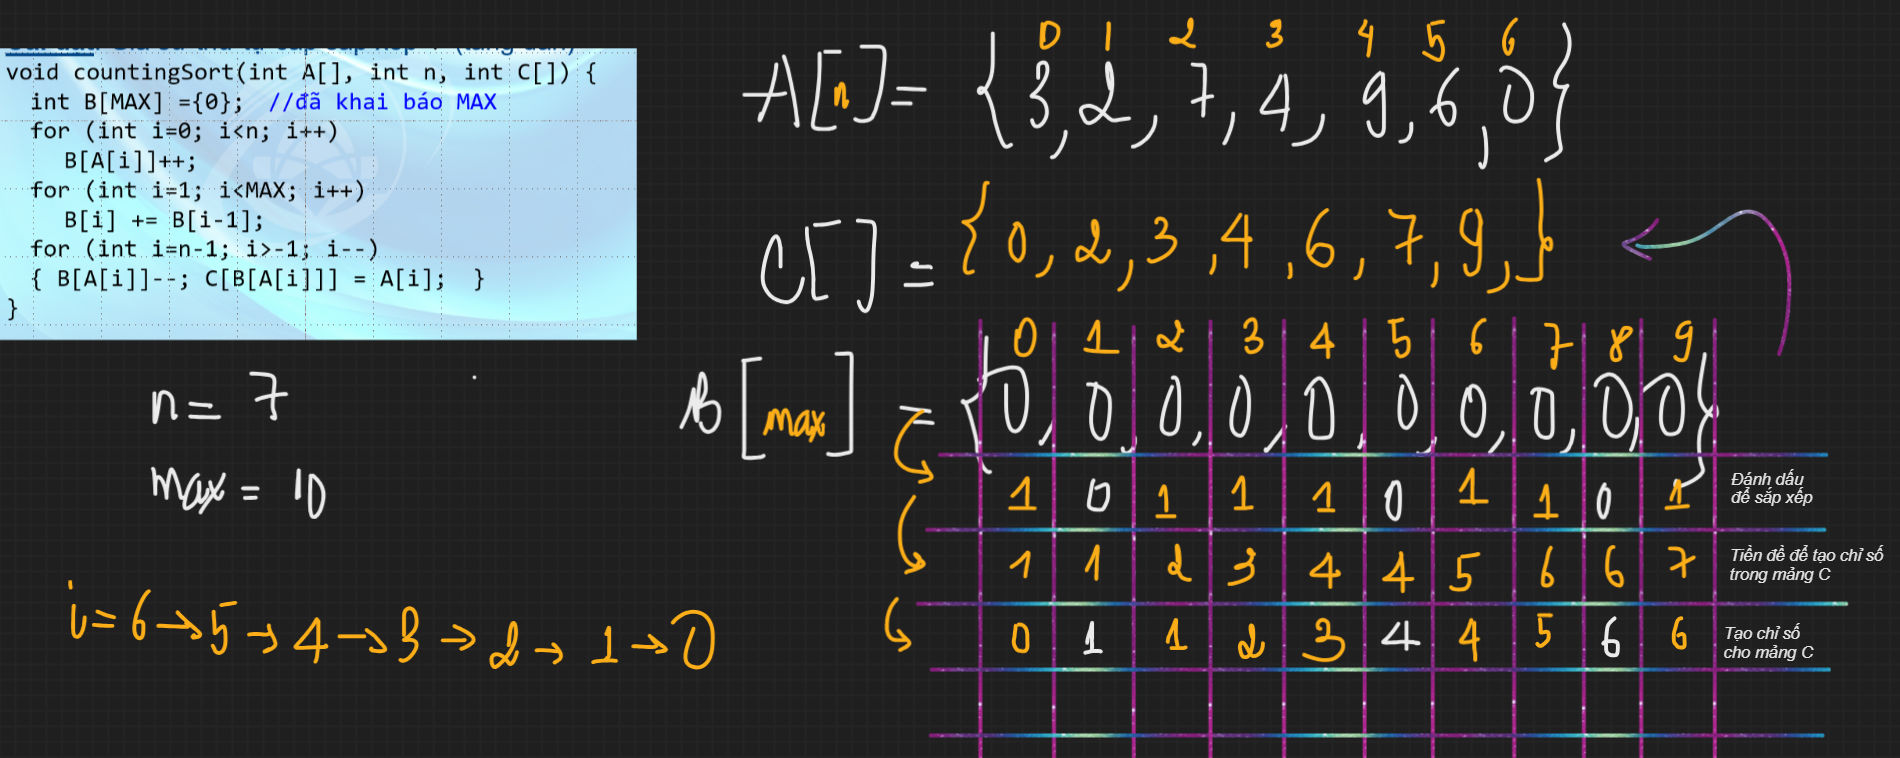 void countingSort(int A[], int n, int C[]) {
int B[MAX] ={0}; //đã khai báo MAX
for (int i=0; i<n; i++)
B[A[i]]++;
for (int i=1; i<MAX; i++)
B[i] += B[i-1];
for (int i=n-1; i>-1; i--)
{ B[A[i]]--; C[B[A[i]]] = A[i]; }
}
n = 7
max = 10
i = 6 → 5 → 4 → 3 → 2 → 1 → 0
0 1 2 3 4 5 6
A[n] = {3, 2, 7, 4, 9, 6, 0}
C[] = {0, 2, 3, 4, 6, 7, 9, }
0 1 2 3 4 5 6 7 8 9
B[max] = {0, 0, 0, 0, 0, 0, 0, 0, 0, 0}
1 0 1 1 1 0 1 1 0 1
Đánh dấu
để sắp xếp
1 1 2 3 4 4 5 6 6 7
Tiền đề để tạo chỉ số
trong mảng C
0 1 1 2 3 4 4 5 6 6
Tạo chỉ số
cho mảng C